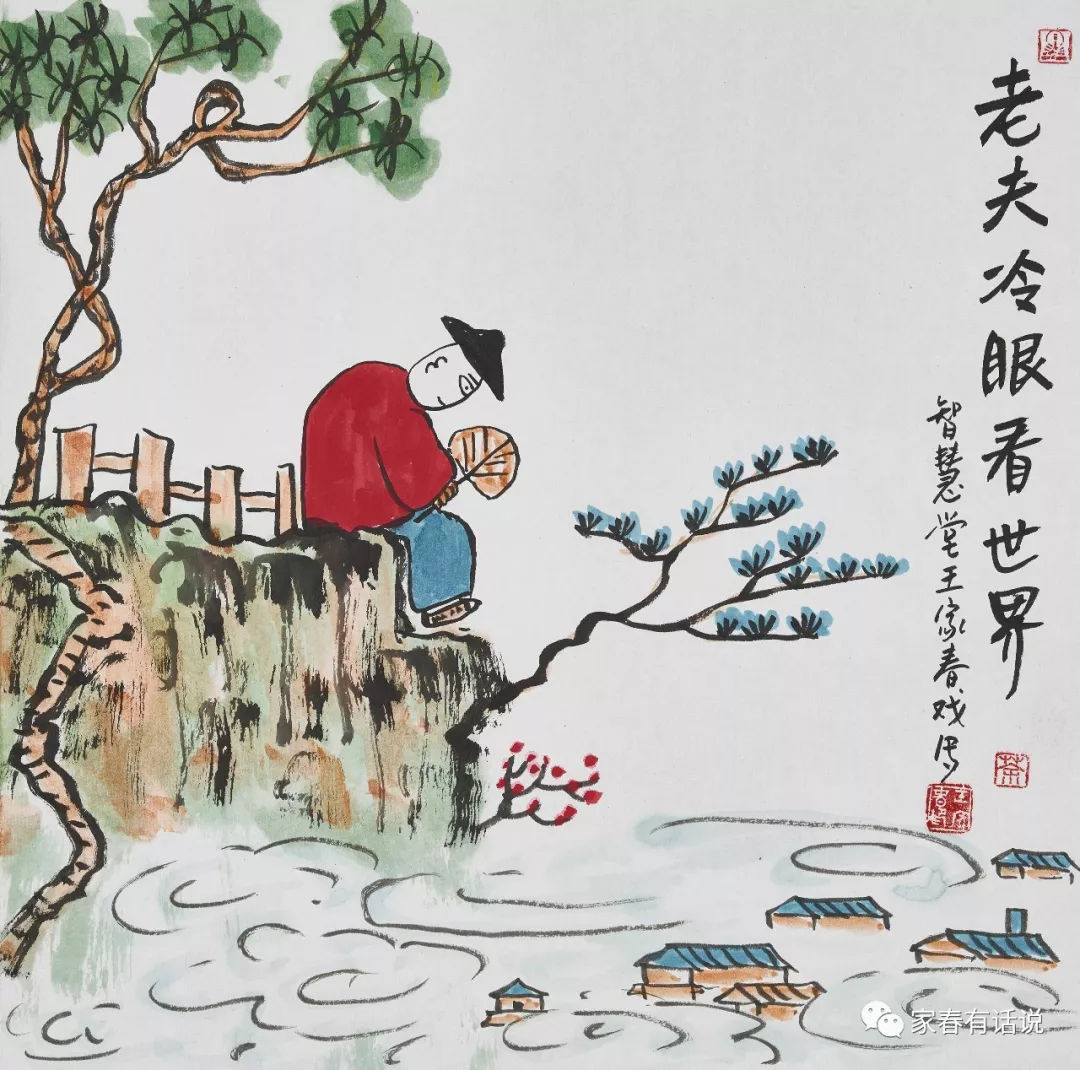 老夫冷眼看世界
智慧堂王家春戏写
茶
家春有话说